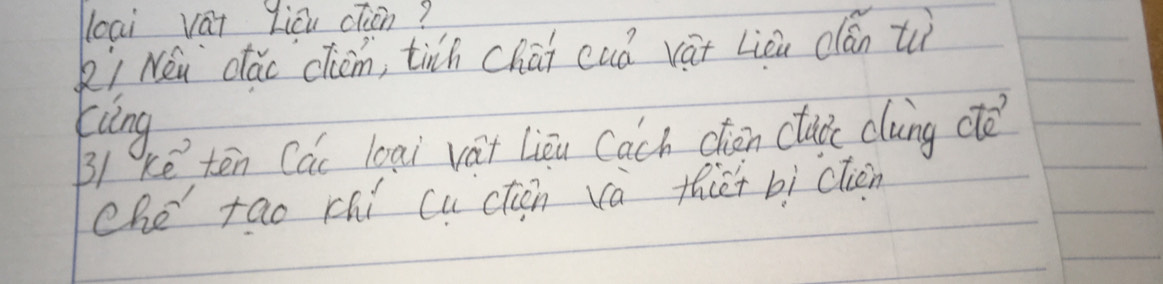 loại vật liệu điện?
2/ Nêu đặc điểm, tính chất của vật liệu dẫn từ
cứng
3/ Kể tên các loại vật liệu cách điện được dùng để
chế tạo khí cụ điện và thiết bị điện